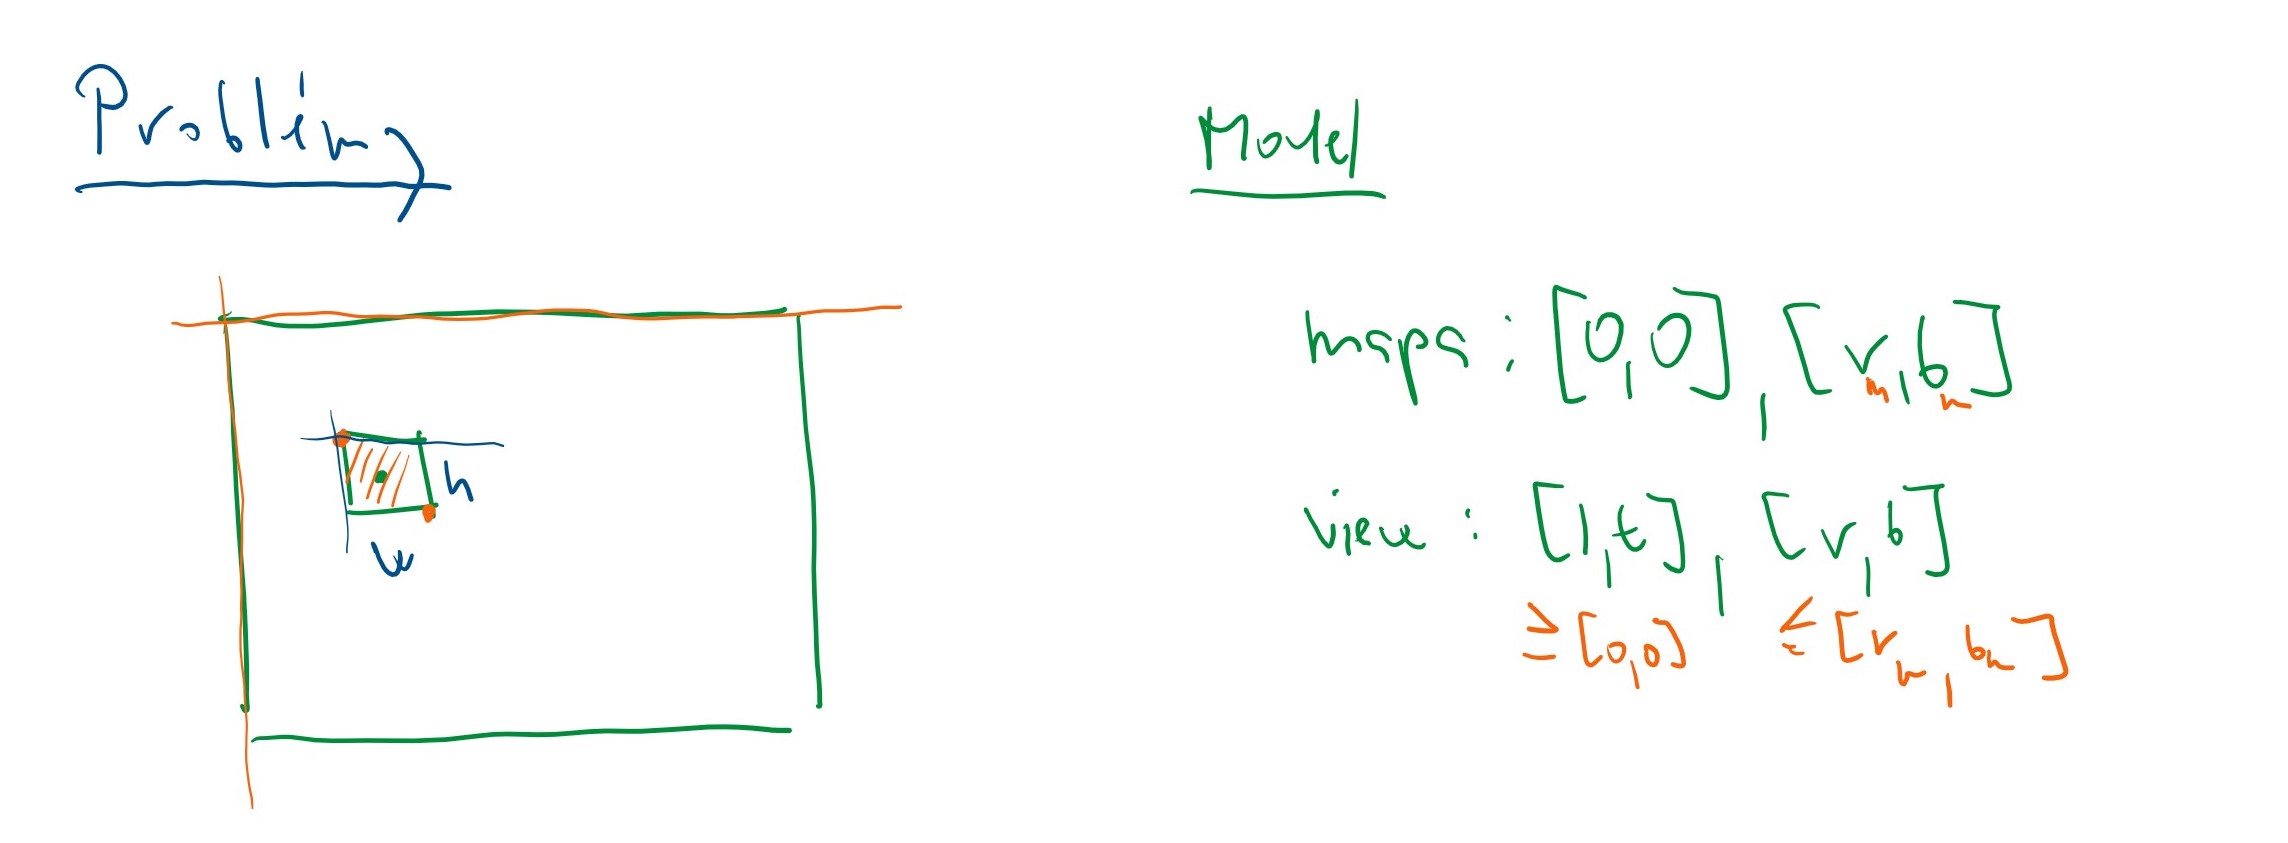 Problém
h
w
Model
mapa : [0,0] , [r_m , b_m]
view : [l,t] , [r,b]
≥ [0,0] ≤ [r_m , b_m]